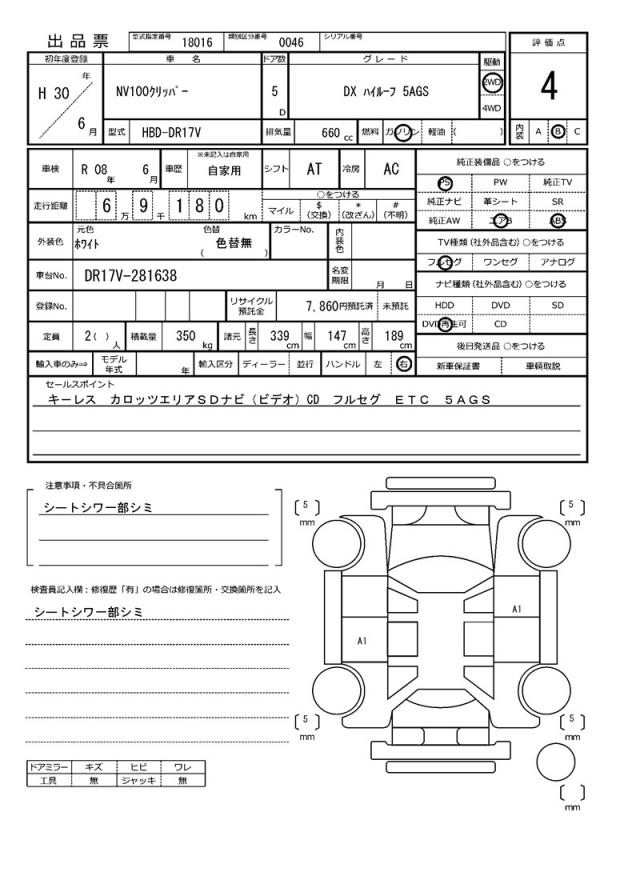 出品票 型式指定番号 18016 類別区分番号 0046 シリアル番号
評価点
4
内装 A B C
初年度登録 車名 ドア数 グレード 駆動
H 30 年 6 月 NV100クリッパー 5 D DX ハイルーフ 5AGS 2WD 4WD
型式 HBD-DR17V 排気量 660 cc 燃料 ガソリン 軽油 ( )
車検 R 08 年 6 月 車歴 ※未記入は自家用 自家用 シフト AT 冷房 AC
走行距離 6 万 9 千 1 8 0 km ○をつける
マイル $ (交換) * (改ざん) # (不明)
外装色 元色 ホワイト 色替 色替無 ( ) カラーNo. 内装色
車台No. DR17V-281638 名変期限 月 日
登録No. リサイクル預託金 7,860円預託済 未預託
定員 2( ) 人 積載量 350 kg 諸元 長さ 339 cm 幅 147 cm 高さ 189 cm
輸入車のみ⇒ モデル年式 年 輸入区分 ディーラー 並行 ハンドル 左 右
純正装備品 ○をつける
PS PW 純正TV
純正ナビ 革シート SR
純正AW エアB ABS
TV種類 (社外品含む) ○をつける
フルセグ ワンセグ アナログ
ナビ種類 (社外品含む) ○をつける
HDD DVD SD
DVD再生可 CD
後日発送品 ○をつける
新車保証書 車輌取説
セールスポイント
キーレス カロッツエリアSDナビ(ビデオ)CD フルセグ ETC 5AGS
注意事項・不具合箇所
シートシワー部シミ
検査員記入欄:修復歴「有」の場合は修復箇所・交換箇所を記入
シートシワー部シミ
ドアミラー キズ ヒビ ワレ
工具 無 ジャッキ 無
[ 5 ] mm
[ 5 ] mm
A1
A1
[ 5 ] mm
[ 5 ] mm
[ ] mm